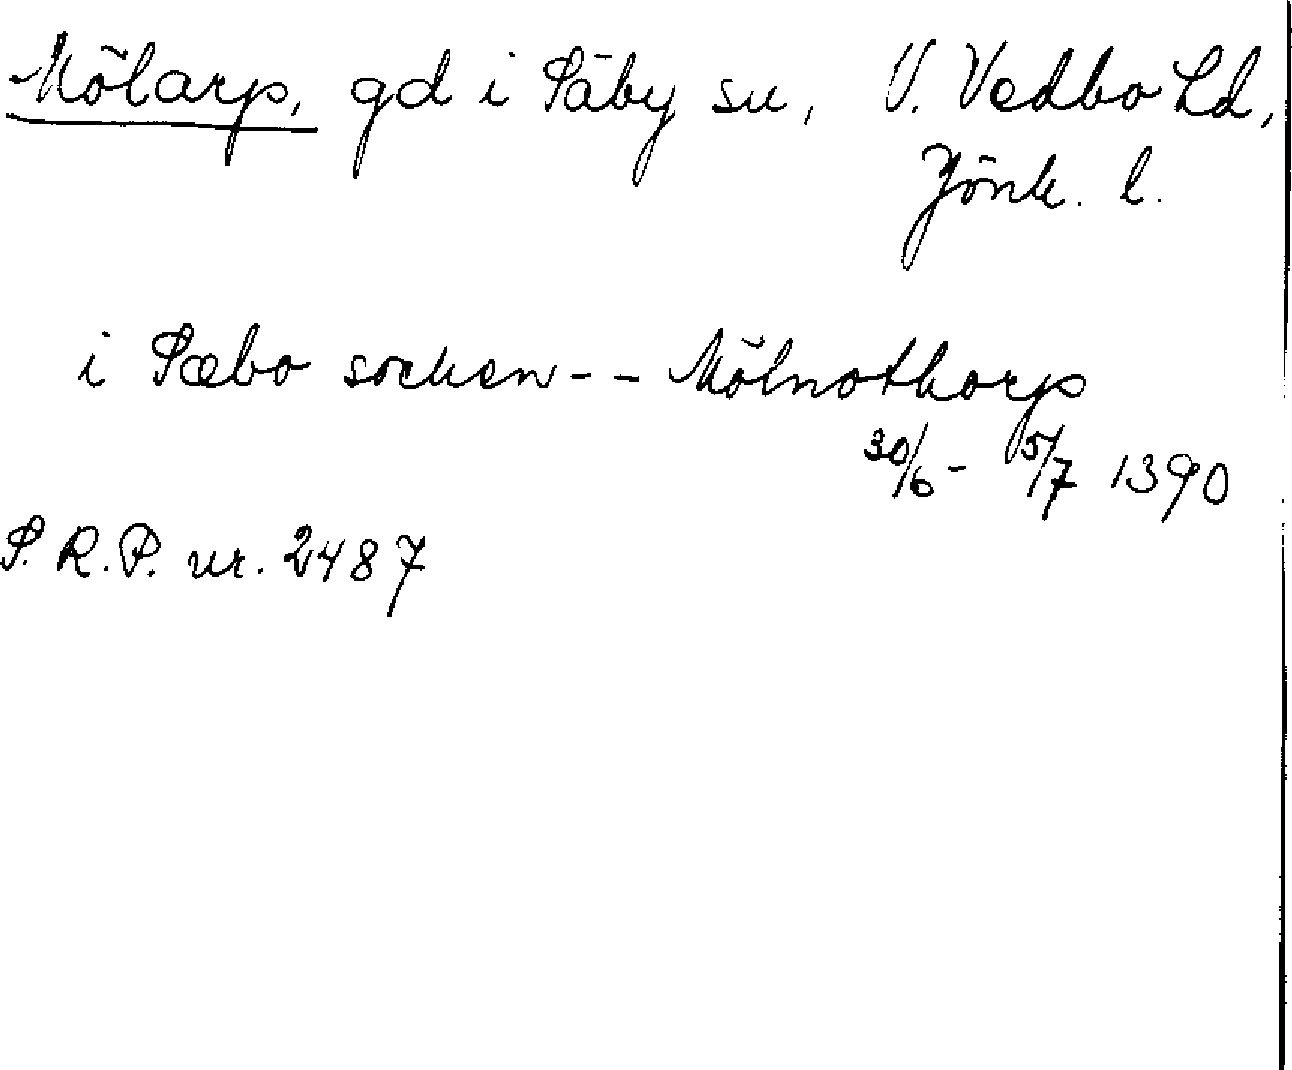 Mölarp, gd i Säby sn, V. Vedbo hd,
Jönk. l.
i Sæbo socken -- Mölnothorp
30/6 - 5/7 1390
S.R.P. nr. 2487